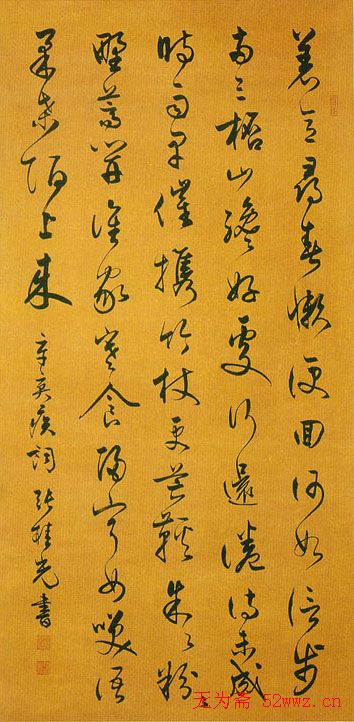 着意尋春懶便回何如信步
兩三桮山纔好處行還倦詩未成
時雨早催攜竹杖更芒鞋朱朱粉粉
野蒿開誰家寒食歸寧女笑語
柔桑陌上來 辛棄疾詞 張桂光書
无为斋 52wwz.cn